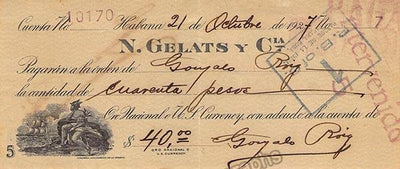 Cuenta No 10170 Habana 21 de Octubre de 1927 No. 7
N. GELATS Y CIA
Pagarán a la orden de Gonzalo Roig
la cantidad de cuarenta pesos
Oro Nacional o U.S. Currency, con adeudo a la cuenta de
$ 40.00 Gonzalo Roig
ORO NACIONAL O
U.S. CURRENCY
5